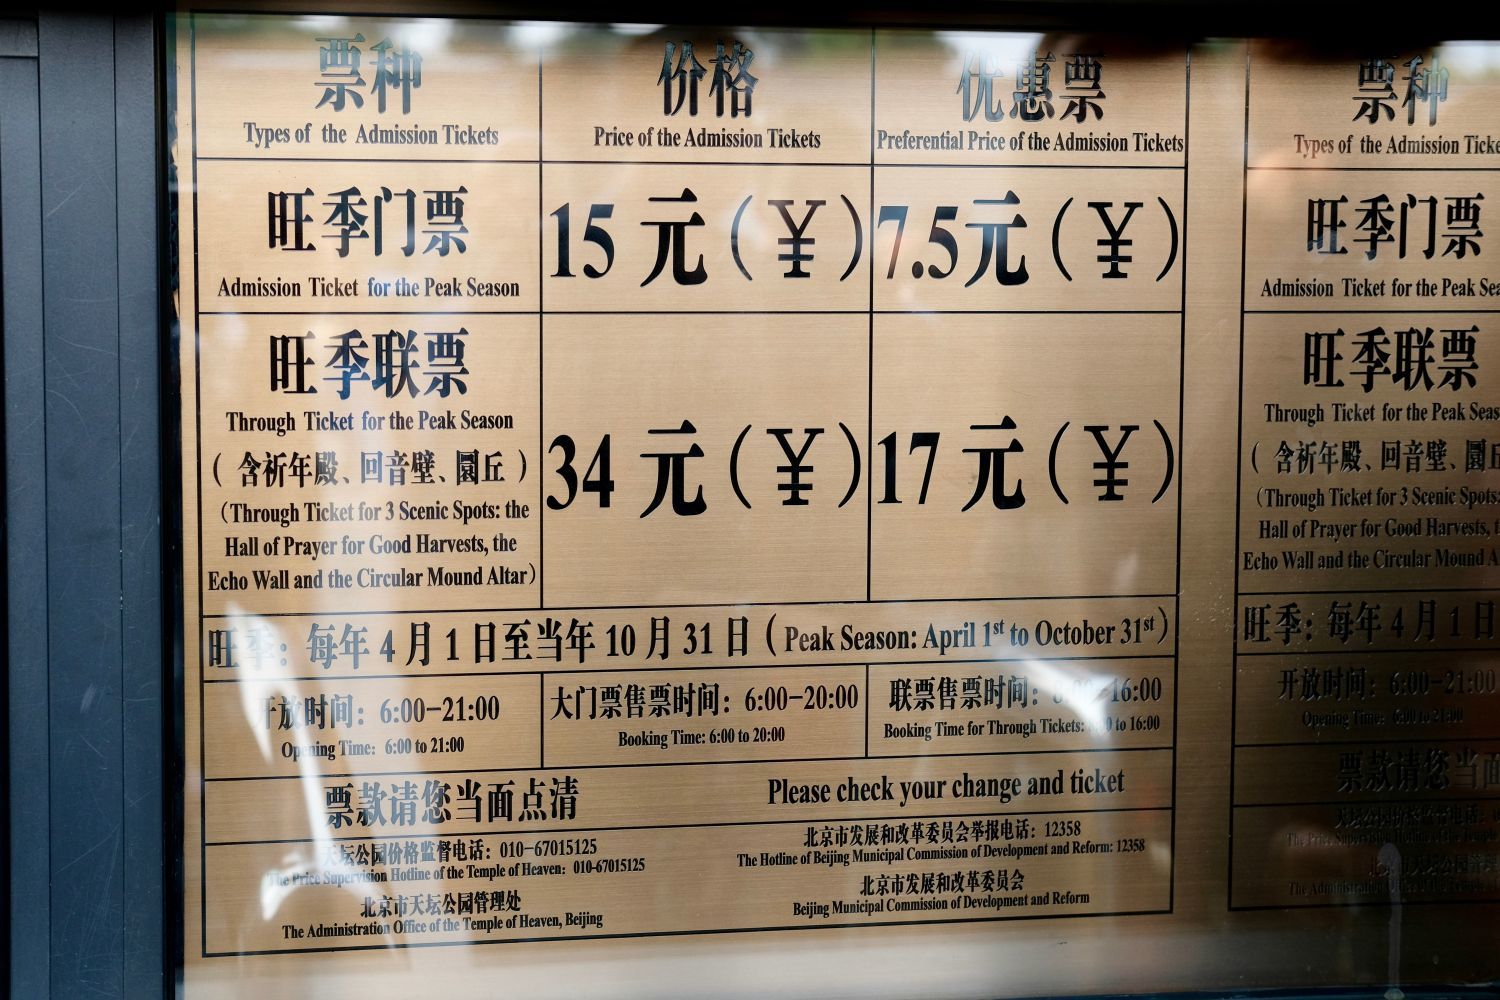 票种 价格 优惠票
Types of the Admission Tickets Price of the Admission Tickets Preferential Price of the Admission Tickets
旺季门票 15 元(¥) 7.5元(¥)
Admission Ticket for the Peak Season
旺季联票
Through Ticket for the Peak Season
(含祈年殿、回音壁、圜丘) 34 元(¥) 17 元(¥)
(Through Ticket for 3 Scenic Spots: the
Hall of Prayer for Good Harvests, the
Echo Wall and the Circular Mound Altar)
旺季：每年 4 月 1 日至当年 10 月 31 日(Peak Season: April 1st to October 31st)
开放时间：6:00-21:00 大门票售票时间：6:00-20:00 联票售票时间：16:00
Opening Time: 6:00 to 21:00 Booking Time: 6:00 to 20:00 Booking Time for Through Tickets: to 16:00
票款请您当面点清 Please check your change and ticket
天坛公园价格监督电话：010-67015125 北京市发展和改革委员会举报电话：12358
The Price Supervision Hotline of the Temple of Heaven: 010-67015125 The Hotline of Beijing Municipal Commission of Development and Reform: 12358
北京市天坛公园管理处 北京市发展和改革委员会
The Administration Office of the Temple of Heaven, Beijing Beijing Municipal Commission of Development and Reform
票种
Types of the Admission
旺季门票
Admission Ticket for the Peak
旺季联票
Through Ticket for the Peak
(含祈年殿、回音壁、圜丘
(Through Ticket for 3 Scenic Spots:
Hall of Prayer for Good Harvests,
Echo Wall and the Circular Mound
旺季：每年 4 月 1 日
开放时间：6:00-21:00
Opening Time: 6:00 to 21:00
票款请您当面
天坛公园价格监督电话：
The Price Supervision Hotline of the Temple
北京市天坛公园管理
The Administration Office of the Temple